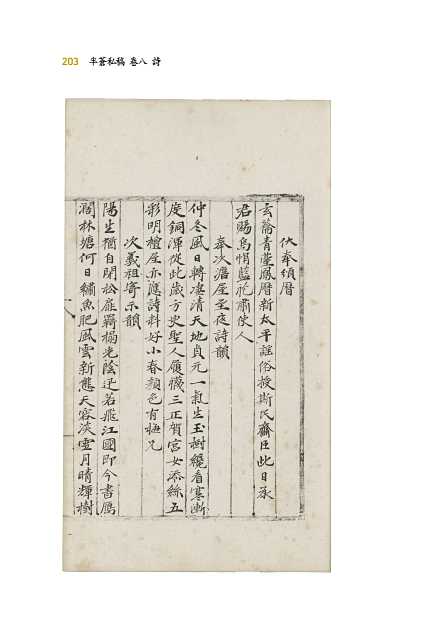 203 半蒼私稿 卷八 詩
伏奉頒曆
玄蓂青臺鳳曆新太平謠俗授斯民齋臣此日承
君賜烏帽藍袍肅使人
奉次澹屋至夜詩韻
仲冬風日轉凄清天地貞元一氣生玉樹纔看寒漸
度銅渾從此歲方史聖人履襪三正賀宮女添絲五
彩明檀屋亦應詩料好小春顏色有梅兄
次義祖寄示韻
陽生楢自閉松扉羇榻光陰迅若飛江國即今書鴈
濶林塘何日鱐魚肥風雲新態天容淡雪月晴輝樹